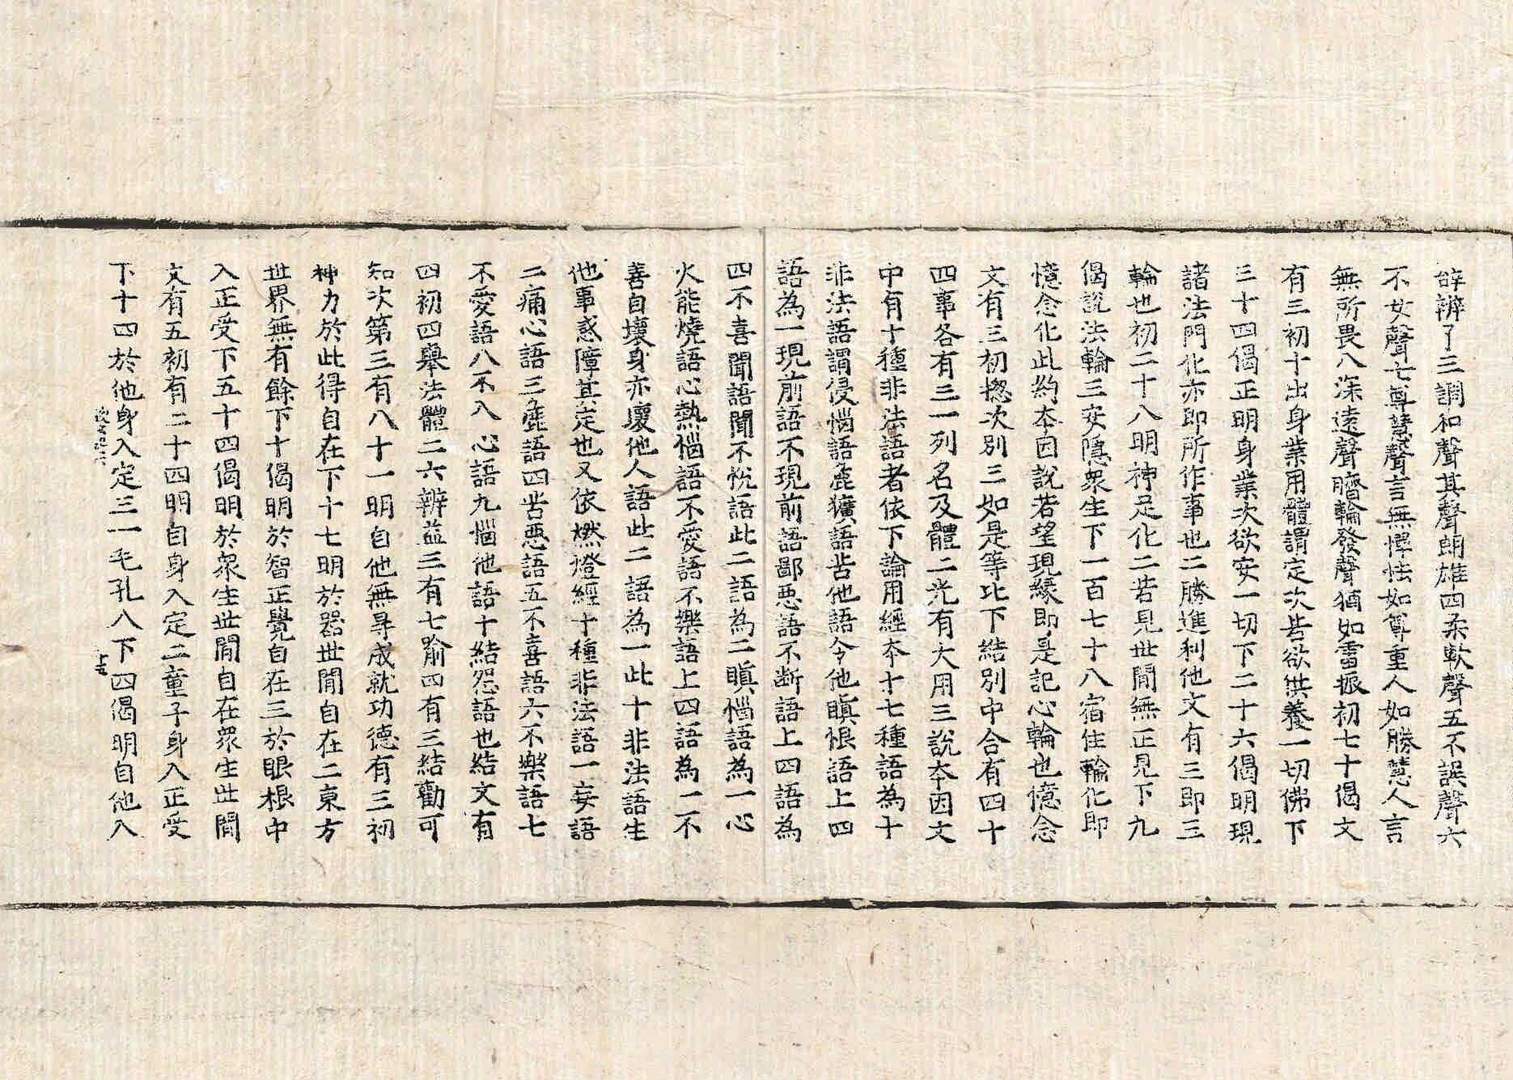 辭辨了三調和聲其聲朗雄四柔軟聲五不誤聲六
不女聲七尊慧聲言無憚怯如尊重人如勝慧人言
無所畏八深遠聲臍輪發聲猶如雷振初七十偈文
有三初十出身業用體謂定次皆欲供養一切佛下
三十四偈正明身業次欲安一切下二十六偈明現
諸法門化亦即所作事也二勝進利他文有三即三
輪也初二十八明神足化二若見世間無正見下九
偈說法輪三安隱衆生下一百七十八宿住輪化即
憶念化此約本因說若望現緣即是記心輪也憶念
文有三初揔次別三如是等比下結別中合有四十
四事各有三一列名及體二光有大用三說本因文
中有十種非法語者依下論用經本十七種語為十
非法語謂侵惱語麁獷語苦他語令他瞋恨語上四
語為一現前語不現前語鄙惡語不断語上四語為
四不喜聞語聞不悅語此二語為二瞋惱語為一心
火能燒語心熱惱語不愛語不樂語上四語為一不
善自壞身亦壞他人語此二語為一此十非法語生
他事惑障其定也又依燃燈經十種非法語一妄語
二痛心語三麁語四苦惡語五不喜語六不樂語七
不愛語八不入心語九惱他語十結怨語也結文有
四初四舉法體二六辨益三有七喻四有三結勸可
知次第三有八十一明自他無㝵成就功德有三初
神力於此得自在下十七明於器世間自在二東方
世界無有餘下十偈明於智正覺自在三於眼根中
入正受下五十四偈明於衆生世間自在衆生世間
文有五初有二十四明自身入定二童子身入正受
下十四於他身入定三一毛孔八下四偈明自他入